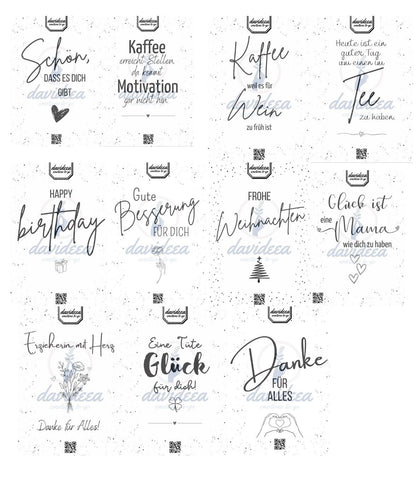 davideea
Schön,
DASS ES DICH
GIBT
davideea
davideea
Kaffee
erreicht Stellen
da kommt
Motivation
gar nicht hin.
davideea
davideea
Kaffee
weil es für
Wein
zu früh ist
davideea
Heute ist ein
guter Tag
um einen im
Tee
zu haben.
davideea
HAPPY
birthday
davideea
davideea
Gute
Besserung
FÜR DICH
davideea
davideea
FROHE
Weihnachten
davideea
Glück ist
eine
Mama
wie dich zu haben
davideea
davideea
Erzieherin mit Herz
davideea
Danke für Alles!
davideea
Eine Tüte
Glück
für dich!
davideea
davideea
Danke
FÜR
ALLES
davideea